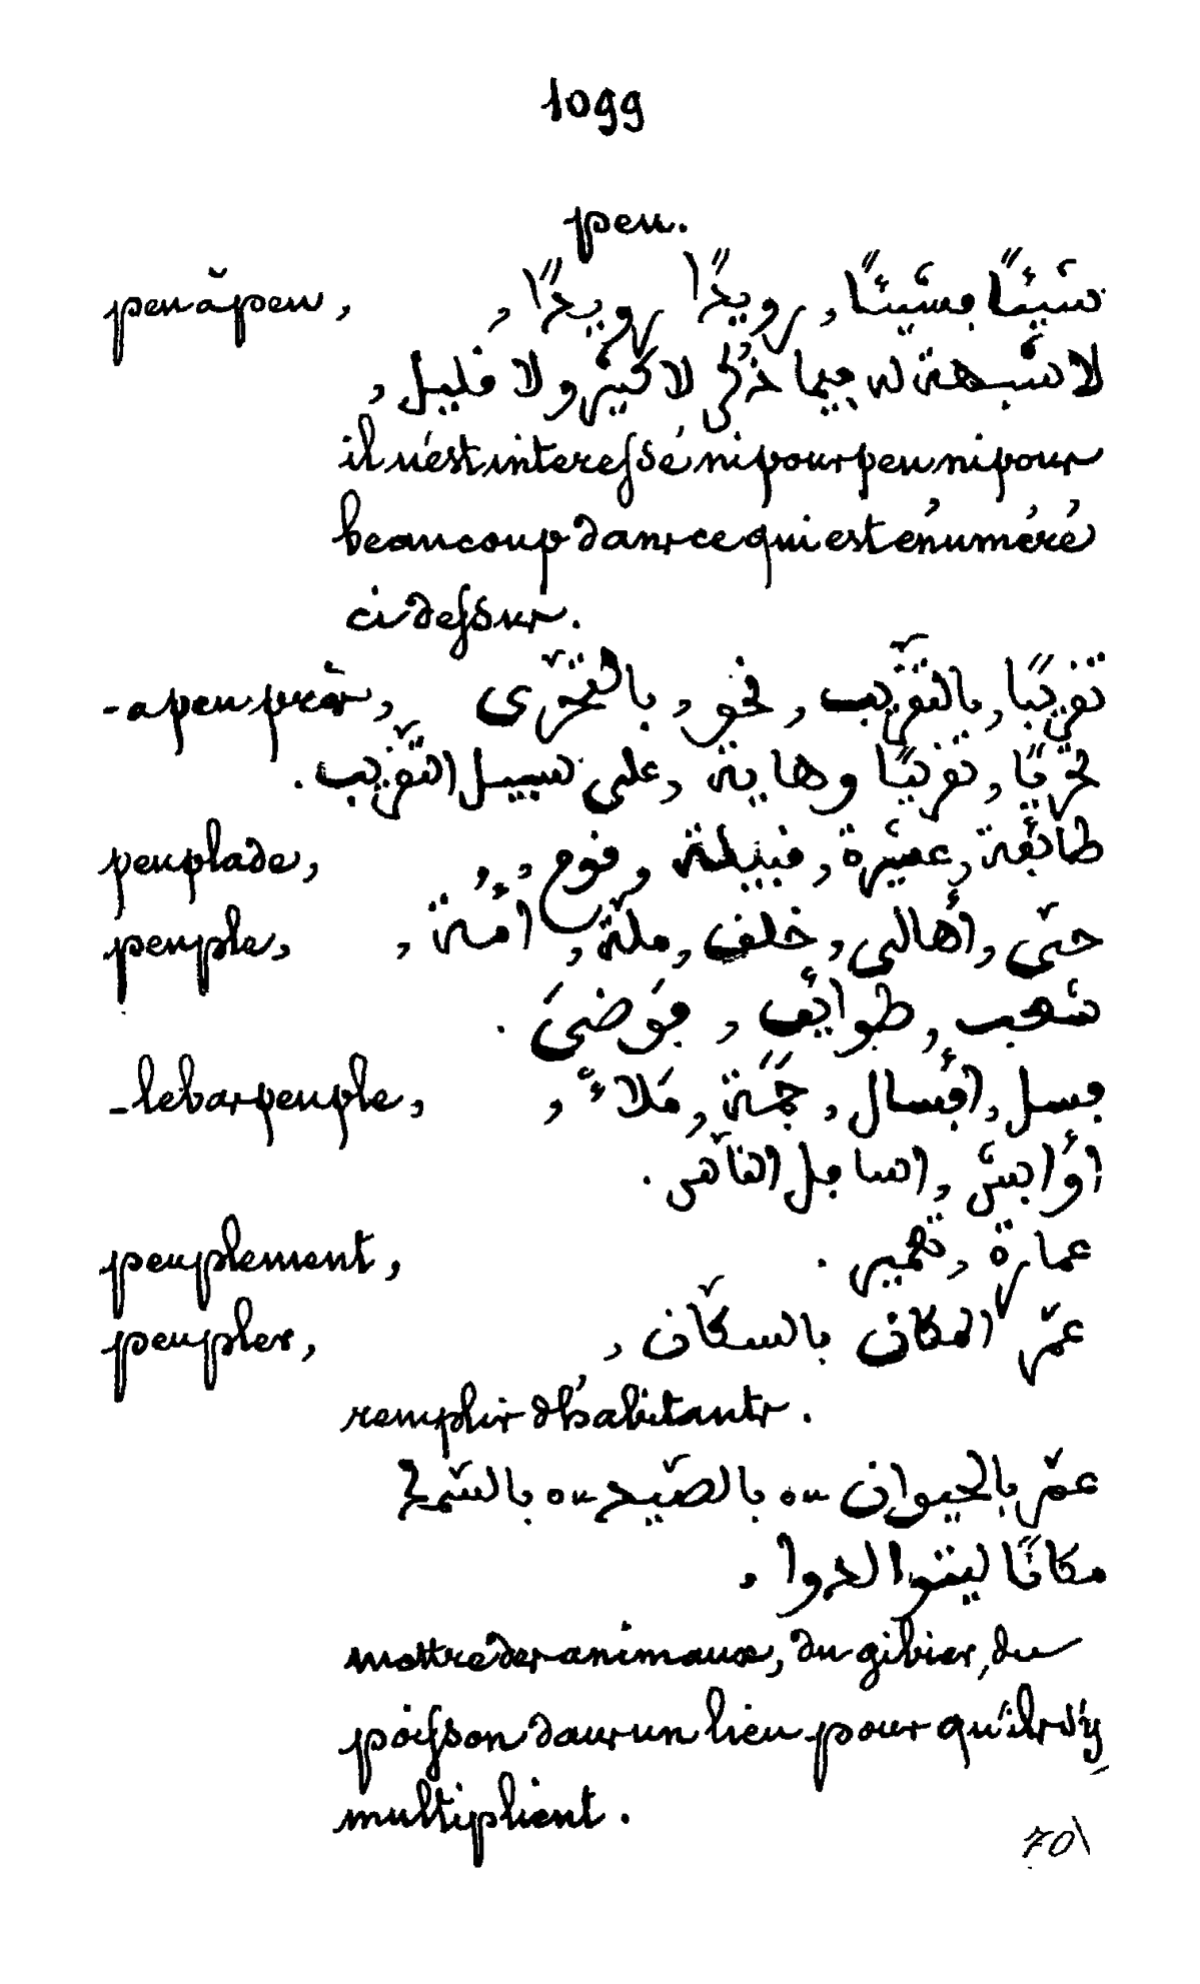 1099
peu.
peu à peu, شيئًا فشيئًا, رويدًا رويدًا,
لا شبهة له فيما ذُكر لا كثير ولا قليل,
il n'est interessé ni pour peu ni pour
beaucoup dans ce qui est énuméré
ci dessus.
- a peu près, تقريبًا, بالتقريب, نحو, بالتحرّى
تحرّيًا, تقريبًا وهاية, على سبيل التقريب.
peuplade, طائفة, عشيرة, قبيلة, فوج,
peuple, حتّى, أهالى, خلق, ملّة, أمة,
شعب, طوائف, فَوضىَ.
- le bas peuple, فسل, افسال, جمّة, مَلاءٌ,
اوابش, اسافل الناس.
peuplement, عمارة, تعمير.
peupler, عمّر المكان بالسكّان,
remplir d'habitants.
عمّر بالحيوان ... بالصيد ... بالسمك
مكانًا ليتوالدوا,
mettre des animaux, du gibier, du
poisson dans un lieu pour qu'ils s'y
multiplient.
701